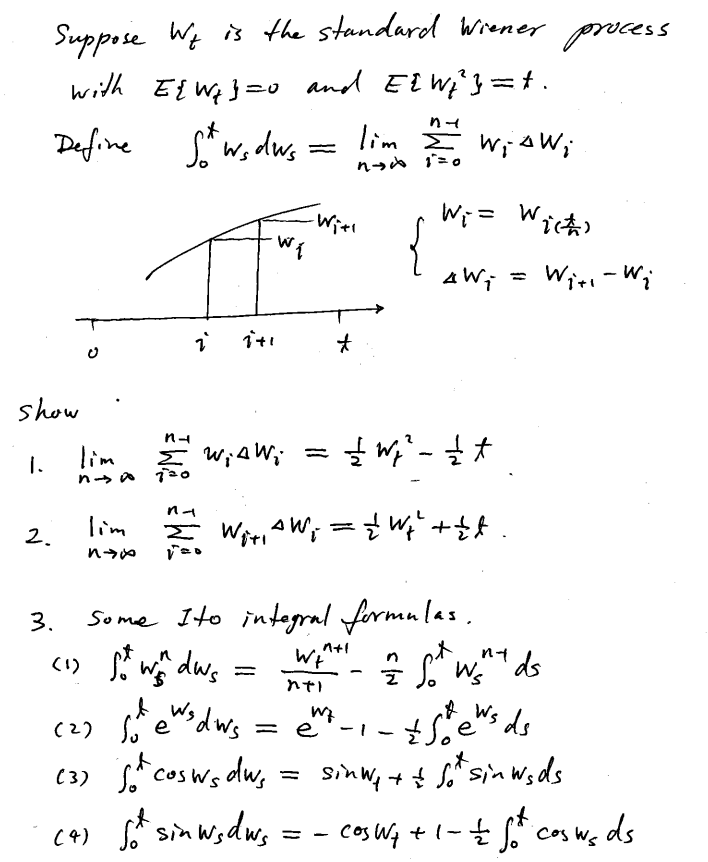 Suppose W_t is the standard Wiener process
with E{W_t}=0 and E{W_t²}=t.
Define ∫₀ᵗ W_s dW_s = lim_{n→∞} Σ_{i=0}^{n-1} W_i ΔW_i
W_{i+1}
W_i
{ W_i = W_{i(t/n)}
ΔW_i = W_{i+1} - W_i
0 i i+1 t
show
1. lim_{n→∞} Σ_{i=0}^{n-1} W_i ΔW_i = ½ W_t² - ½ t
2. lim_{n→∞} Σ_{i=0}^{n-1} W_{i+1} ΔW_i = ½ W_t² + ½ t.
3. Some Ito integral formulas.
(1) ∫₀ᵗ W_s^n dW_s = W_t^{n+1}/(n+1) - n/2 ∫₀ᵗ W_s^{n-1} ds
(2) ∫₀ᵗ e^{W_s} dW_s = e^{W_t} - 1 - ½ ∫₀ᵗ e^{W_s} ds
(3) ∫₀ᵗ cos W_s dW_s = sin W_t + ½ ∫₀ᵗ sin W_s ds
(4) ∫₀ᵗ sin W_s dW_s = - cos W_t + 1 - ½ ∫₀ᵗ cos W_s ds